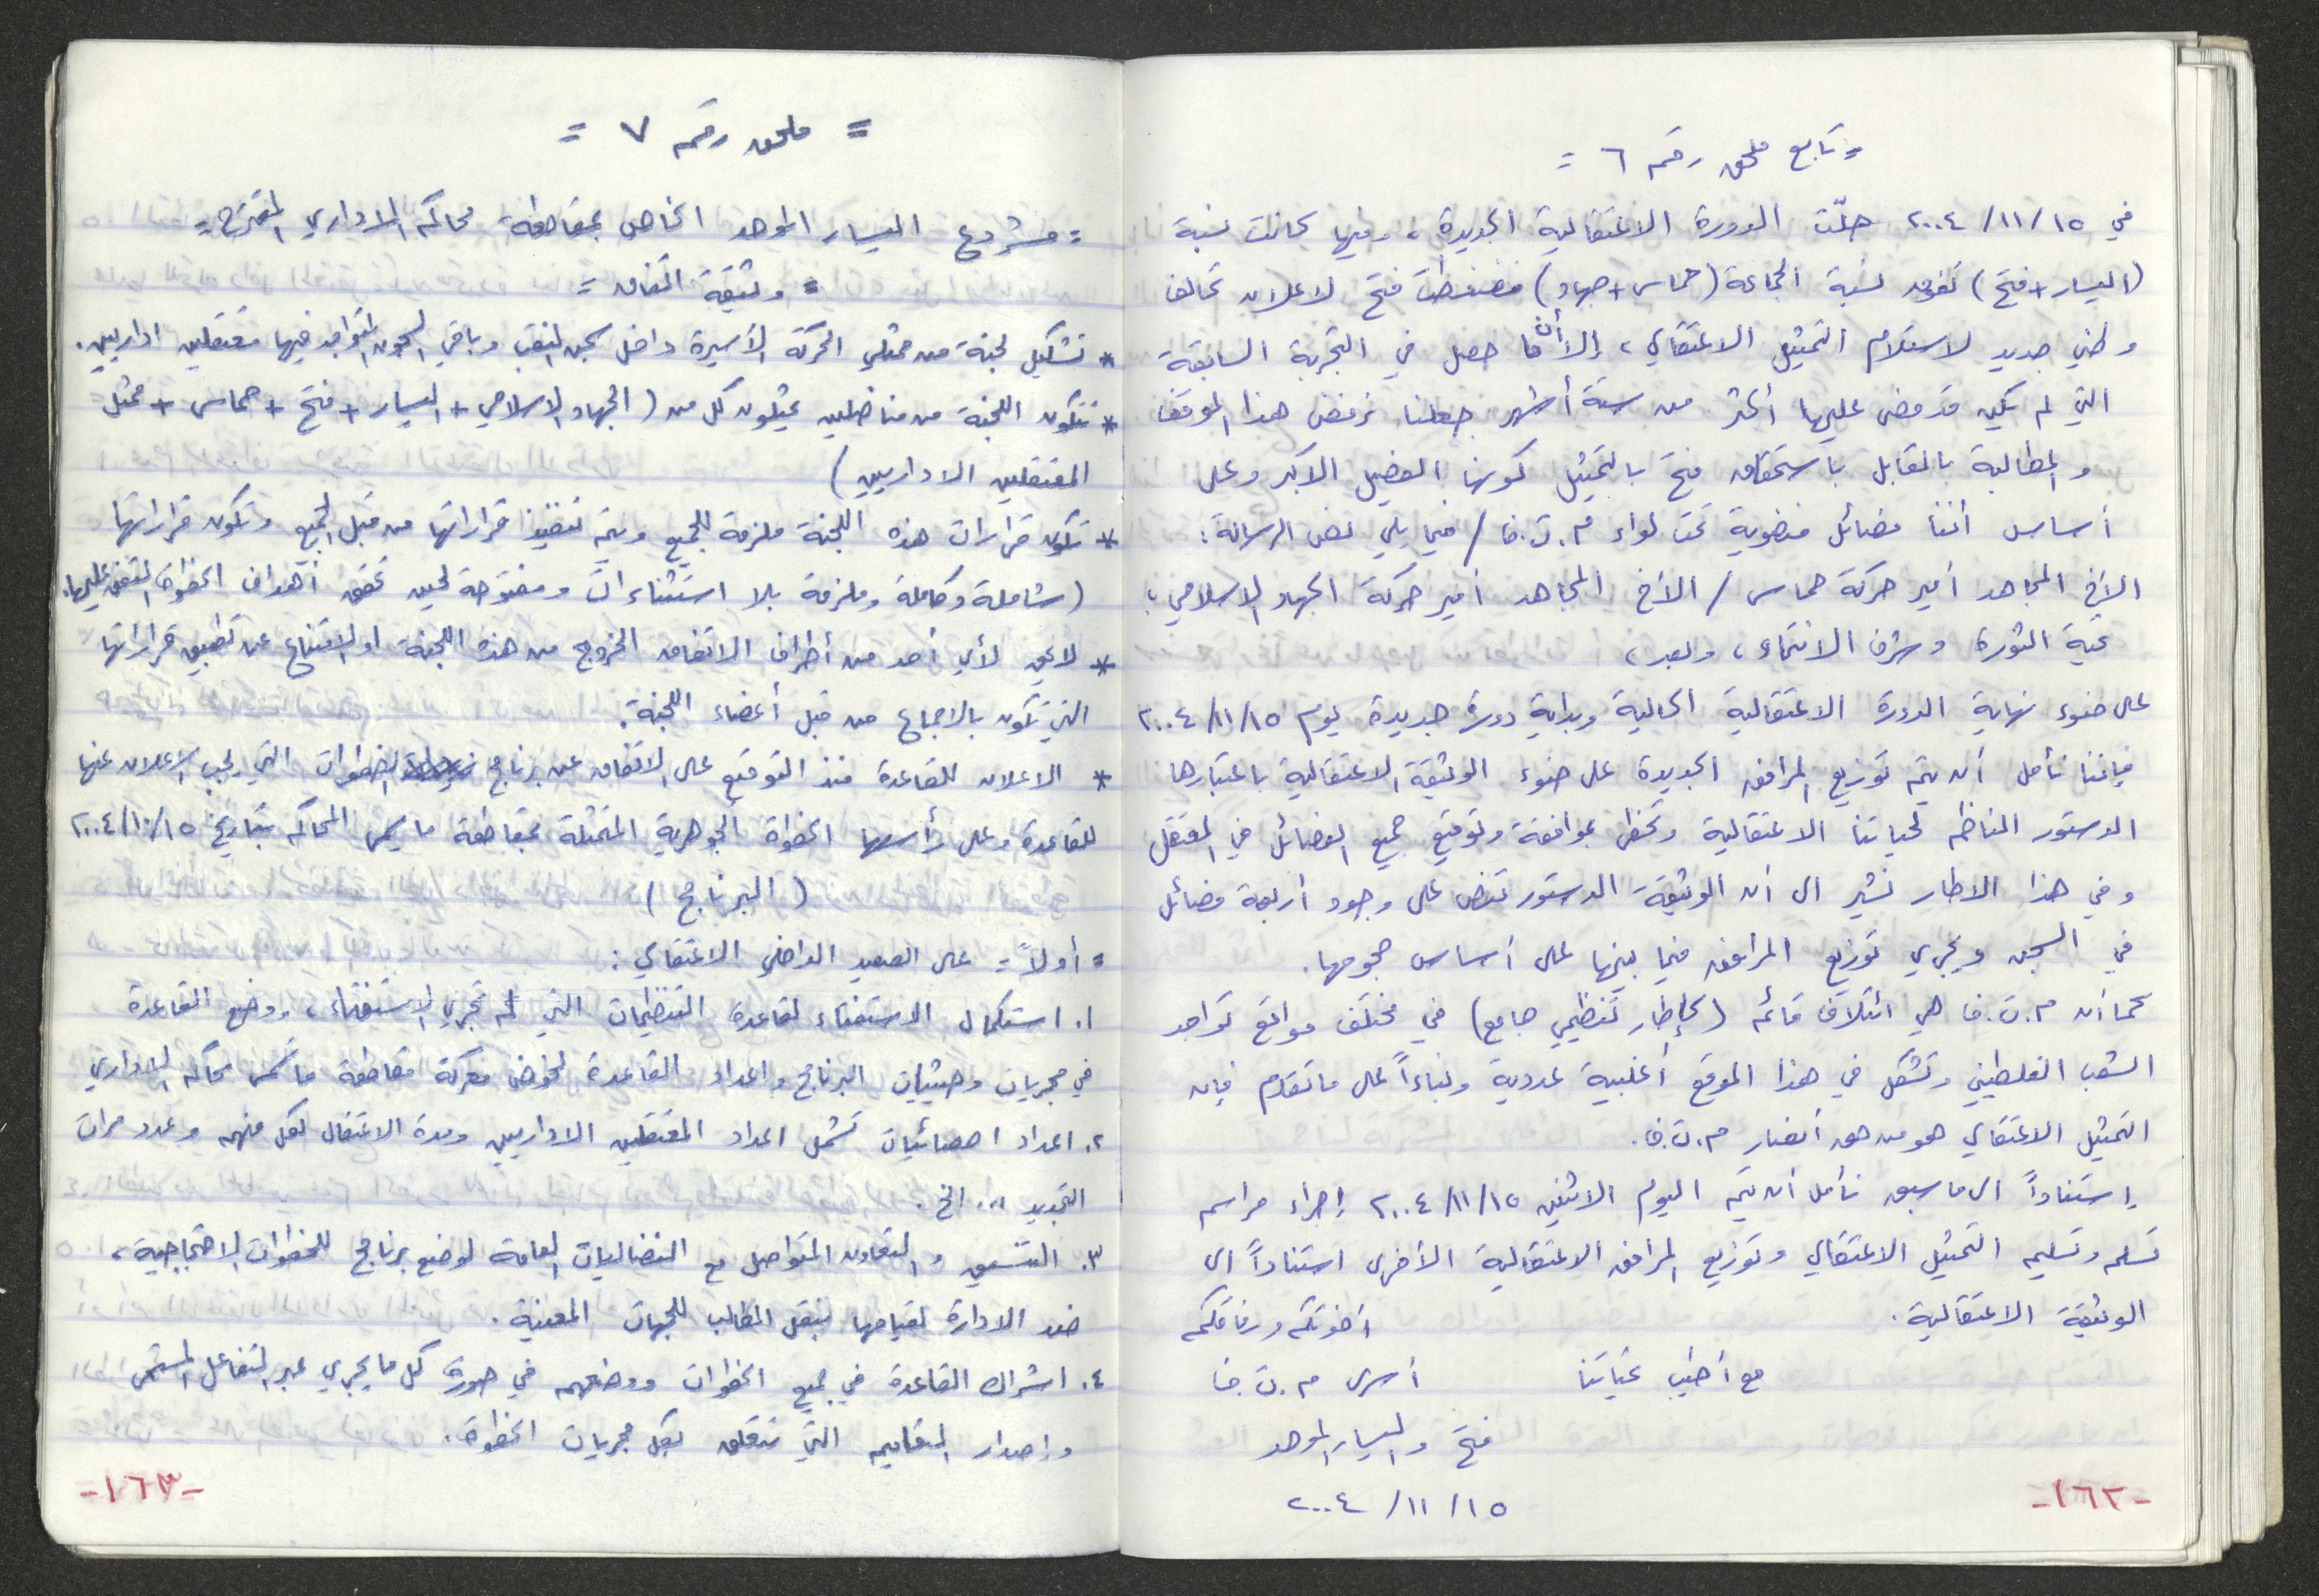 = تابع ملحق رقم ٦ =
في ١٥/١١/٢٠٠٤ حلّت الدورة الاعتقالية الجديدة، وفيها كانت نسبة
(اليسار + فتح) تفوق نسبة الجماعة (حماس + جهاد) فضغطت فتح لاعلان تحالف
وطني جديد لاستلام التمثيل الاعتقالي، إلا أن ما حصل في التجربة السابقة
التي لم يكن قد مضى عليها أكثر من ستة أشهر جعلنا نرفض هذا الموقف
والمطالبة بالمقابل باستحقاق فتح بالتمثيل كونها الفصيل الاكبر وعلى
أساس أننا فصائل منضوية تحت لواء م.ت.ف / فيما يلي نص الرسالة:
الأخ المجاهد أمير حركة حماس / الأخ المجاهد أمير حركة الجهاد الاسلامي؛
تحية الثورة وشرف الانتماء، وبعد،
على ضوء نهاية الدورة الاعتقالية الحالية وبداية دورة جديدة يوم ١٥/١١/٢٠٠٤
فإننا نأمل أن يتم توزيع المرافق الجديدة على ضوء الوثيقة الاعتقالية باعتبارها
الدستور الناظم لحياتنا الاعتقالية وتحظى بموافقة وتوقيع جميع الفصائل في المعتقل
وفي هذا الاطار نشير الى أن الوثيقة الدستور تنص على وجود أربعة فصائل
في السجن ويجري توزيع المرافق فيما بينها على أساس حجومها.
كما أن م.ت.ف هي ائتلاف قائم (كإطار تنظيمي جامع) في مختلف مواقع تواجد
الشعب الفلسطيني وتشكل في هذا الموقع أغلبية عددية وبناءاً على ما تقدم فإن
التمثيل الاعتقالي هو من حق أنصار م.ت.ف.
إستناداً الى ما سبق نأمل أن يتم اليوم الاثنين ١٥/١١/٢٠٠٤ إجراء مراسم
تسلم وتسليم التمثيل الاعتقالي وتوزيع المرافق الاعتقالية الأخرى استناداً الى
الوثيقة الاعتقالية. أخوتكم ورفاقكم
مع أطيب تحياتنا أسرى م.ت.ف
فتح واليسار الموحد
١٥/١١/٢٠٠٤
-١٦٢-
= ملحق رقم ٧ =
= مشروع اليسار الموحد الخاص بمقاطعة محاكم الاداري المقترح =
= وثيقة اتفاق =
* تشكيل لجنة من ممثلي الحركة الأسيرة داخل سجن النقب وباقي السجون المتواجد فيها معتقلين اداريين.
* تتكون اللجنة من مناضلين يمثلون كل من (الجهاد الاسلامي + اليسار + فتح + حماس + ممثل
المعتقلين الاداريين)
* تكون قرارات هذه اللجنة ملزمة للجميع ويتم تنفيذ قراراتها من قبل الجميع وتكون قراراتها
(شاملة وكاملة وملزمة بلا استثناءات ومفتوحة لحين تحقق أهداف الخطوة المتفق عليها.
* لا يحق لأي أحد من أطراف الاتفاق الخروج من هذه اللجنة او الامتناع عن تطبيق قراراتها
التي تكون بالاجماع من قبل أعضاء اللجنة.
* الاعلان للقاعدة منذ التوقيع على الاتفاق عن برنامج الخطوات التي يجب الاعلان عنها
للقاعدة وعلى رأسها الخطوة الجوهرية المتمثلة بمقاطعة ما يسمى المحاكم بتاريخ ١٥/١٠/٢٠٠٤
(البرنامج)
= أولاً = على الصعيد الداخلي الاعتقالي:
١. استكمال الاستفتاء لقاعدة التنظيمات التي لم تجري الاستفتاء، ووضع القاعدة
في مجريات وحيثيات البرنامج واعداد القاعدة لخوض معركة مقاطعة ما تسمى محاكم الاداري
٢. اعداد احصائيات تشمل اعداد المعتقلين الاداريين ومدة الاعتقال لكل منهم وعدد مرات
التجديد ... الخ.
٣. التنسيق والتعاون المتواصل مع النضاليات العامة لوضع برنامج للخطوات الاحتجاجية،
ضد الادارة لقيامها بنقل المطالب للجهات المعنية.
٤. اشراك القاعدة في جميع الخطوات ووضعهم في صورة كل ما يجري عبر التفاعل المستمر
وإصدار التعاميم التي تتعلق بكل مجريات الخطوة.
-١٦٣-